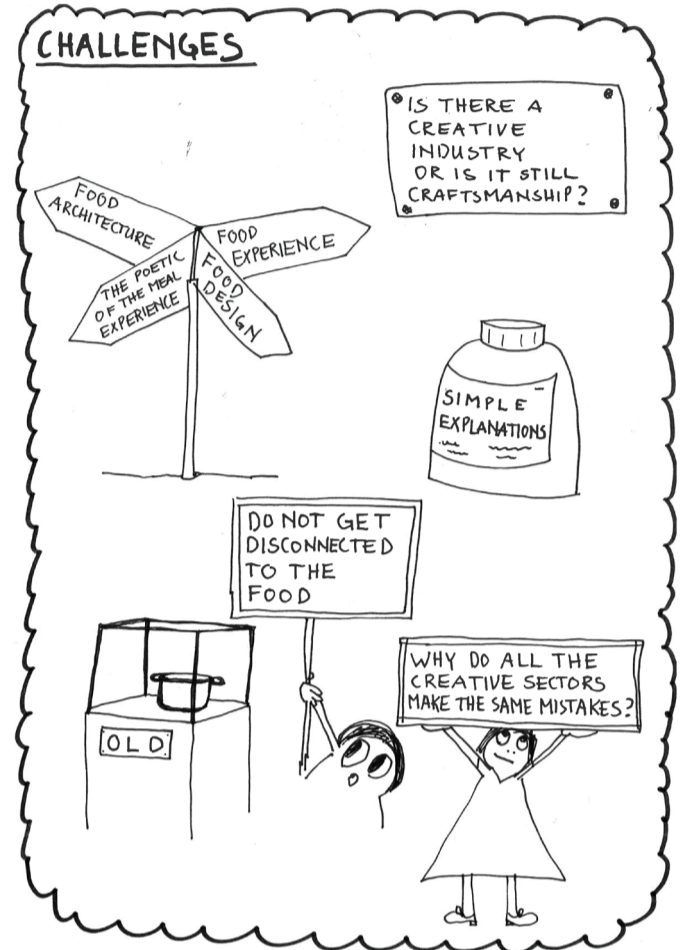 CHALLENGES
IS THERE A
CREATIVE
INDUSTRY
OR IS IT STILL
CRAFTSMANSHIP?
FOOD
ARCHITECTURE
FOOD
EXPERIENCE
THE POETIC
OF THE MEAL
EXPERIENCE
FOOD
DESIGN
SIMPLE
EXPLANATIONS
DO NOT GET
DISCONNECTED
TO THE
FOOD
WHY DO ALL THE
CREATIVE SECTORS
MAKE THE SAME MISTAKES?
OLD